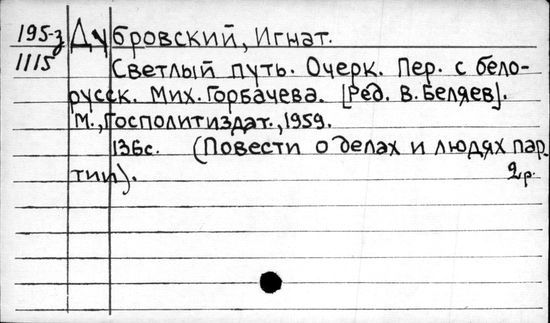 195-з Дубровский, Игнат.
1115 Светлый путь. Очерк. Пер. с бело-
русск. Мих. Горбачева. [Ред. В. Беляев].
М., Госполитиздат., 1959.
136с. (Повести о делах и людях пар-
тии).
2р.